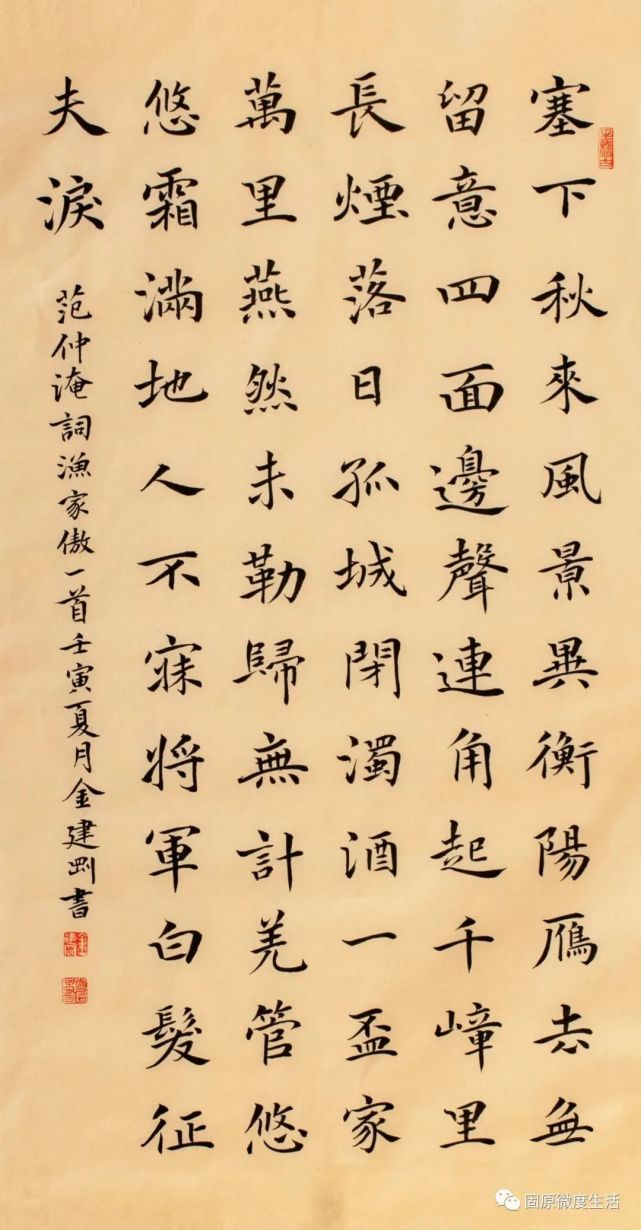 塞下秋來風景異衡陽雁去無
留意四面邊聲連角起千嶂里
長煙落日孤城閉濁酒一盃家
萬里燕然未勒歸無計羌管悠
悠霜滿地人不寐將軍白髮征
夫淚
范仲淹詞漁家傲一首壬寅夏月金建剛書
固原微度生活